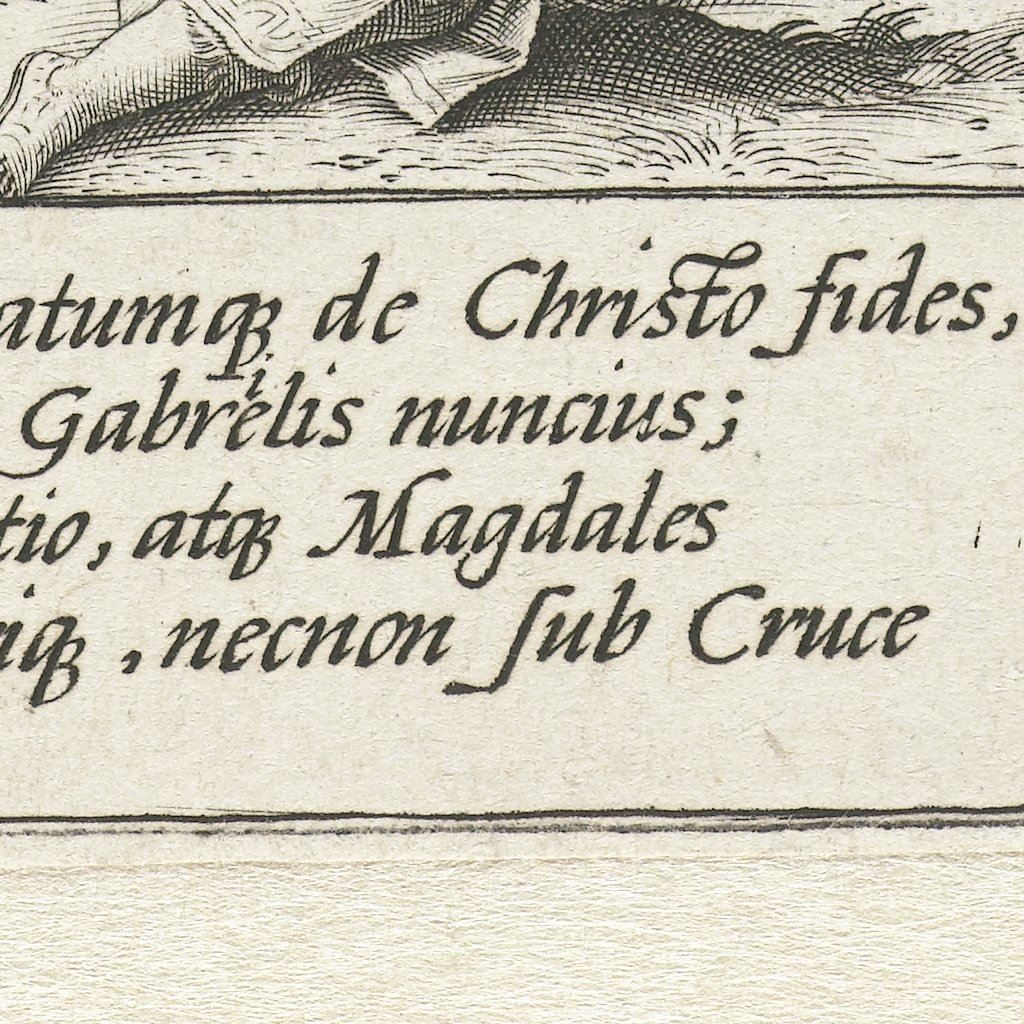 atumq; de Christo fides,
Gabrielis nuncius;
tio, atq; Magdales
iq;, necnon ſub Cruce